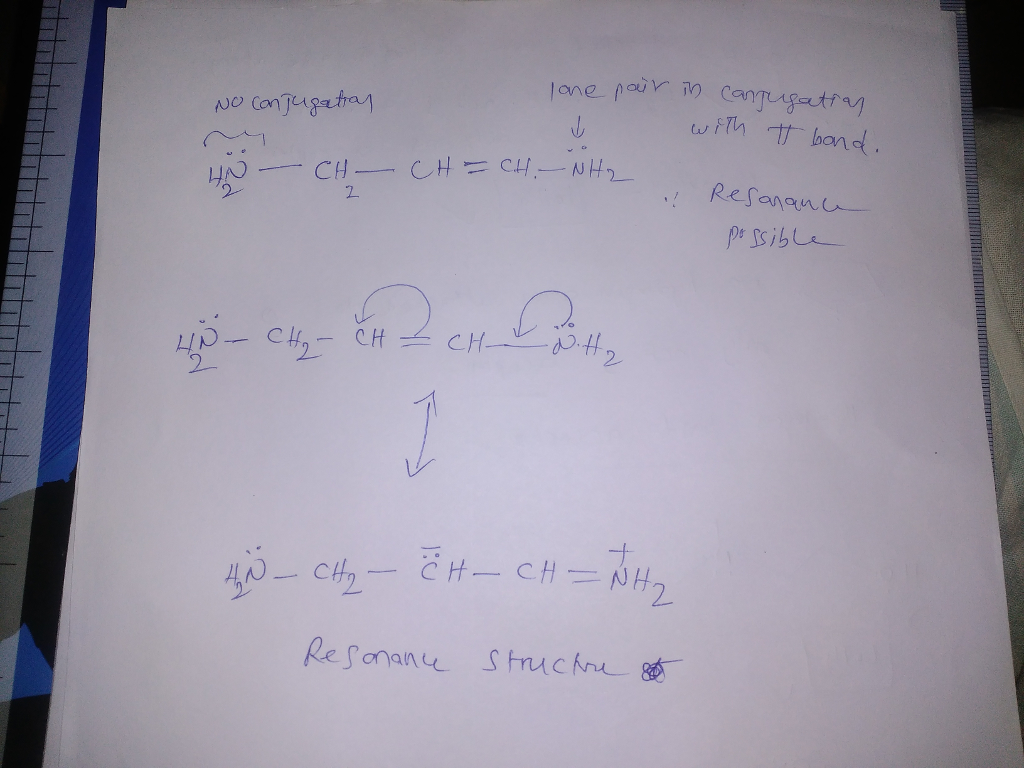 No conjugation
lone pair in conjugation
with π bond.
H₂N̈ — CH₂ — CH = CH — N̈H₂
∴ Resonance
possible
H₂N̈ — CH₂ — CH = CH — N̈H₂
H₂N̈ — CH₂ — C̈⁻H — CH = N⁺H₂
Resonance structure